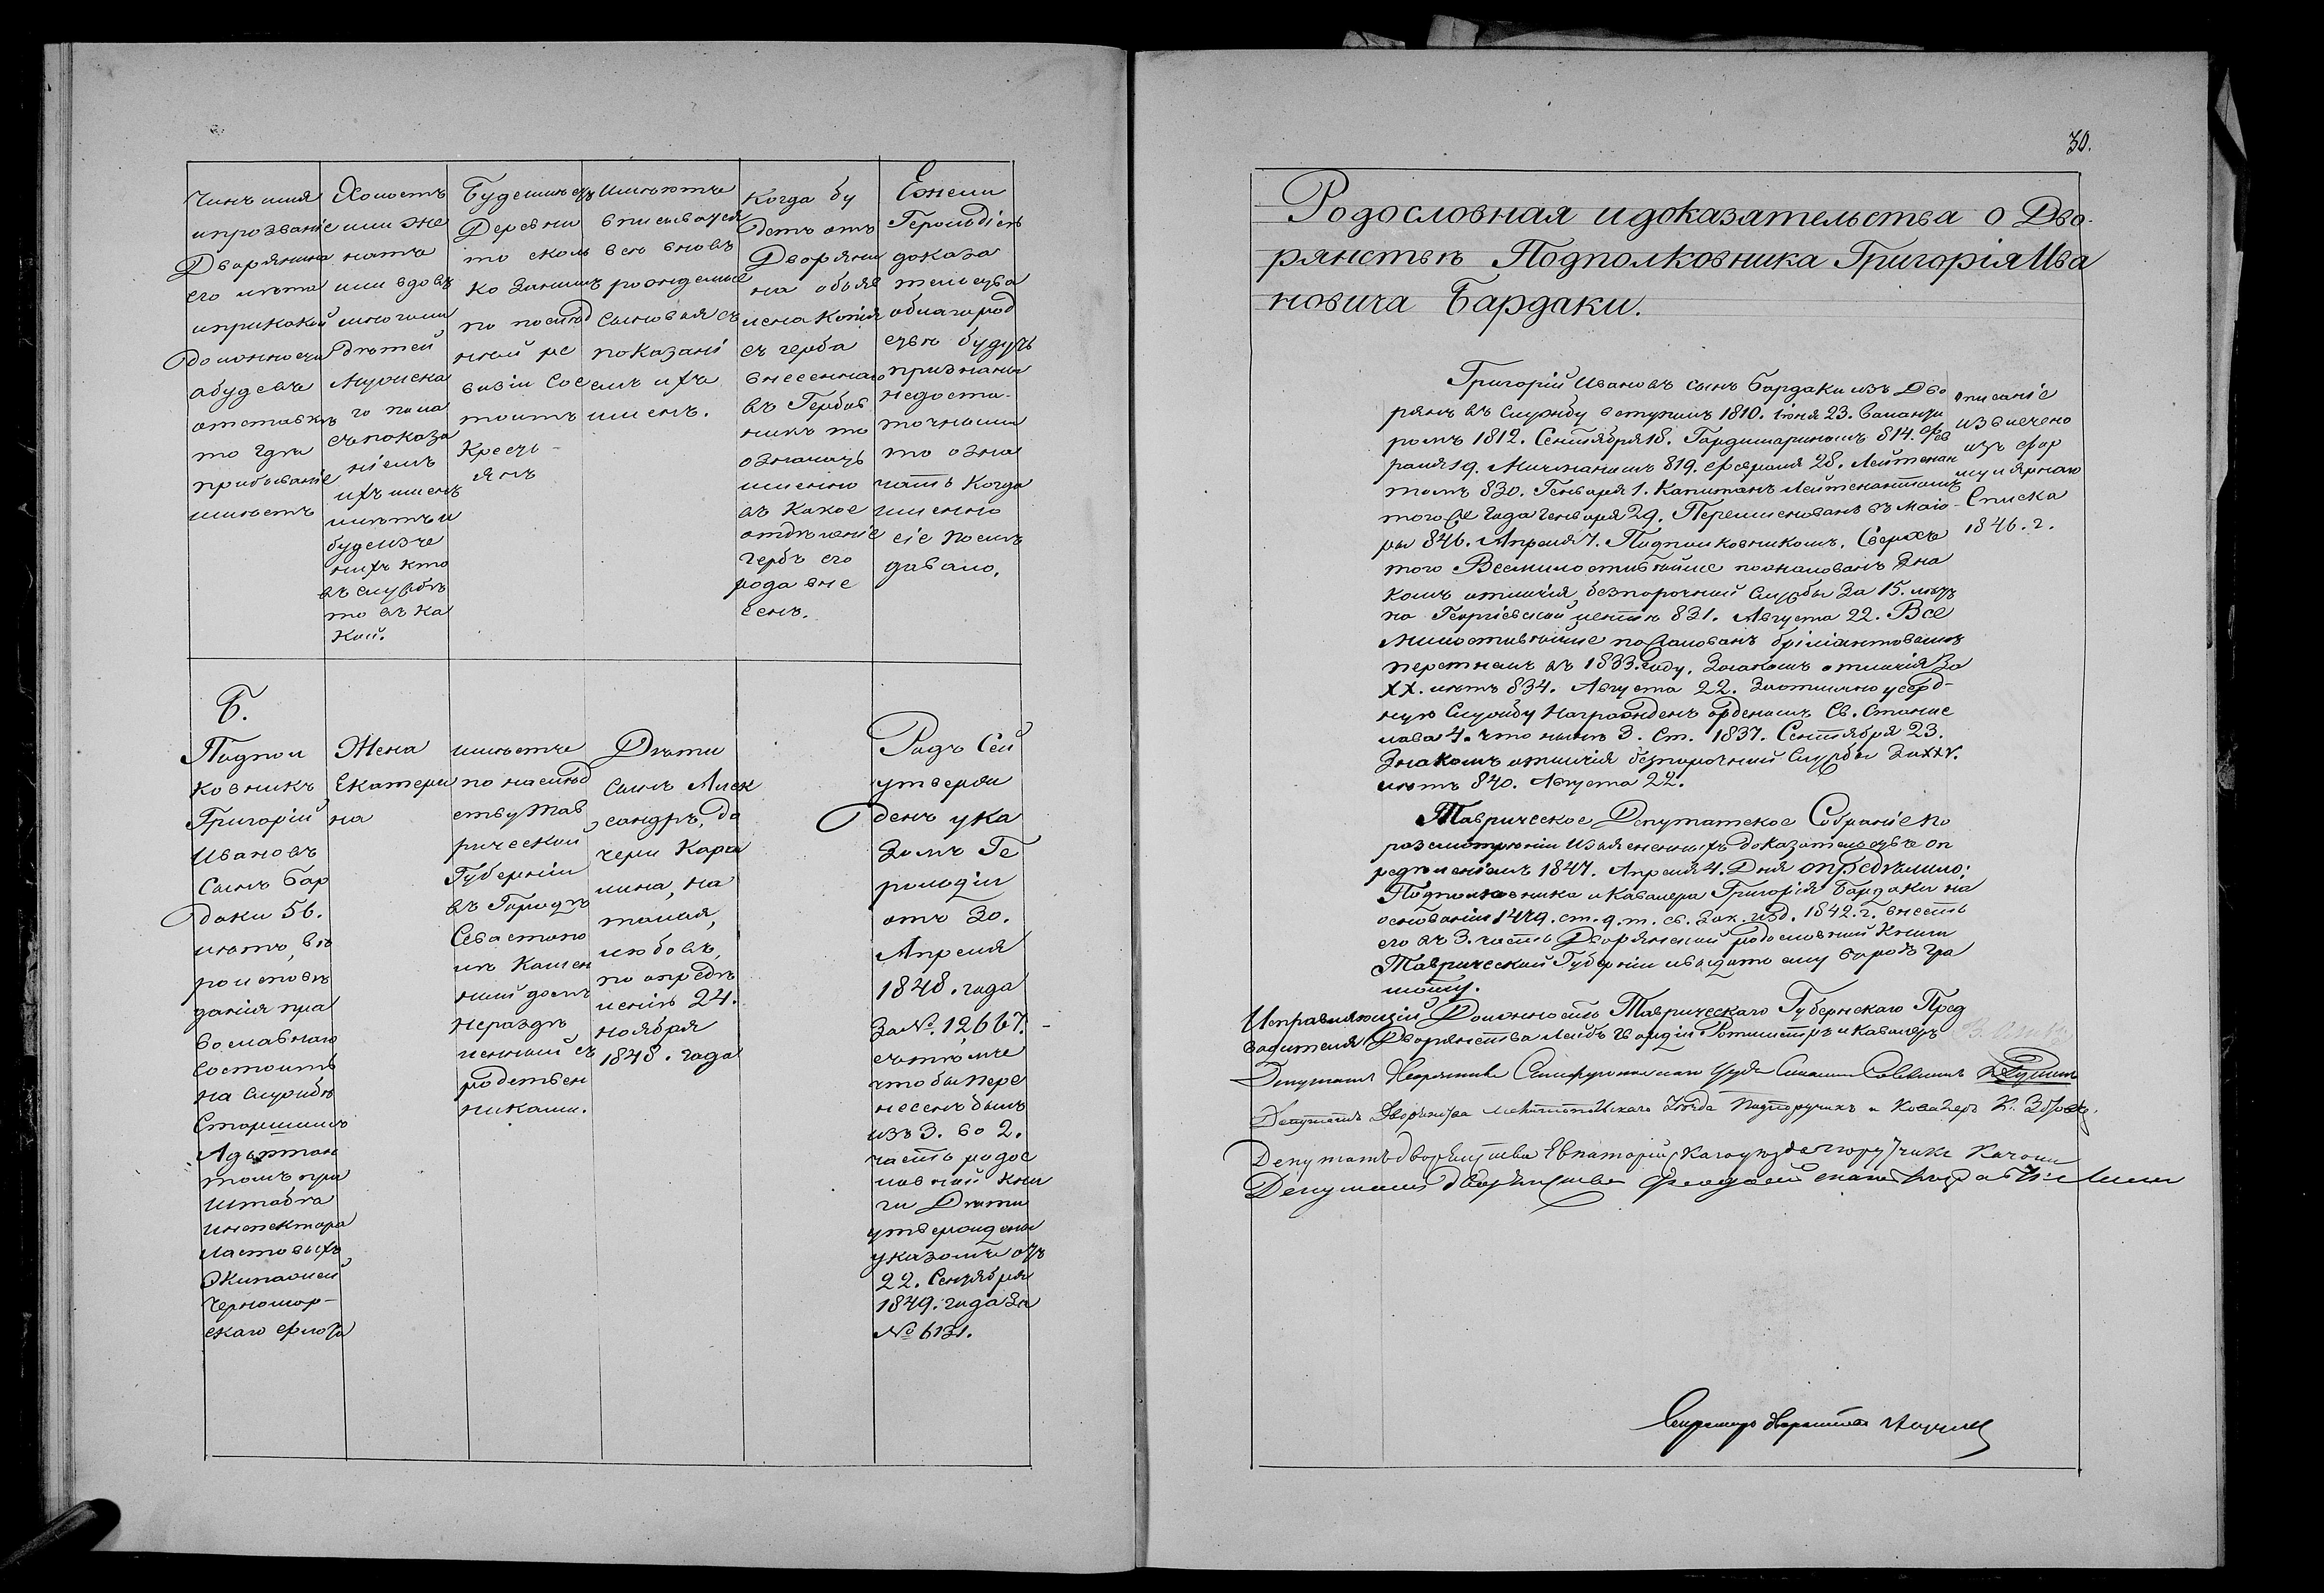 Чинъ имя
ипрозваніе
Дворянина
его лѣта
иприкакой
должности
абудевъ
отставкѣ
то гдѣ
прибываніе
имѣетъ
Холостъ
или же
натъ
или вдовъ
многоли
дѣтей
Мужеска
го пола
съпоказа
ніемъ
ихъ именъ
илѣтъ и
будеизъ
нихъ кто
въ службѣ
то въ ка
кой.
Будеимѣетъ
Деревни
то сколь
ко Заними
по послѣд
ней ре
визіи Сос
тоитъ
Кресть-
янъ
Имѣютъ
вписыватся
всѣ вновь
рожденные
Сыновья съ
показані
емъ ихъ
именъ.
Когда бу
детъ отъ
Дворяни
на объяв
лена Копія
съ герба
внесеннаго
въ Гербов
никъ то
означить
именно
въ Какое
отдѣленіе
гербъ его
рода вне
сенъ.
Ежели
Герольдіею
доказа
тельства
облагород
ствѣ будутъ
признаны
недоста-
точными
то озна
чать Когда
именно
сіе послѣ
давало.
Б.
Подпол
ковникъ
Григорій
Ивановъ
Сынъ Бар
даки 56.
лѣтъ, вѣ
роисповѣ
данія пра
вославнаго
Состоитъ
на службѣ
Старшимъ
Адьютан
томъ при
Штабѣ
Инспектора
Ластовыхъ
Экипажей
Черномор-
скаго флота
Жена
Екатери
на
имѣетъ
по наслѣд
ствуТав
рической
Губерніи
въ Городѣ
Севастопо
лѣ Камен
ный домъ
Нераздѣ
ленный съ
родствен
никами.
Дѣти
Сынъ Алек
сандръ, до
чери Каро
лина, На
талія,
любовь,
по опредѣ
ленію 24.
ноября
1848. года
Родъ Сей
утверж
денъ ука
зомъ Ге
рольдіи
отъ 30.
Апреля
1848. года
За № 12667. -
сътѣмъ
чтобыпере
несенъ былъ
изъ 3. во 2.
часть родос
ловной Кни
ги Дѣти
утверждены
указомъ отъ
22. Сентября
1849. года За
№ 6131.
30.
Родословная идоказательства о Дво-
рянствѣ Подполковника Григорія Ива
новича Бардаки.
Григорій Ивановъ сынъ Бардаки изъ Дво
рянъ въ службу вступилъ 1810. Іюня 23. Волонте
ромъ 1812. Сентября 18. Гардемариномъ 814. Фев
раля 19. Мичманомъ 819. Февраля 28. Лейтенан
томъ 830. Генваря 1. Капитанъ Лейтенантомъ
того Же года Генваря 29. Переименованъ въ маіо-
ры 846. Апреля 7. Подполковникомъ. Сверхъ
того Всемилостивѣйше пожалованъ Зна
комъ отличія безпорочной службы За 15. лѣтъ
на Георгіевской лентѣ 831. Августа 22. Все
милостивѣйше пожалованъ брилiантовымъ
перстнемъ въ 1833. году. Знакомъ отличія За
XX. лѣтъ 834. Августа 22. Заотлично усерд-
ную Службу Награжденъ орденомъ Св. Станис
лава 4. что нынѣ 3. Ст. 1837. Сентября 23.
Знакомъ отличія безпорочной Службы ЗаXXV.
лѣтъ 840. Августа 22.
описаніе
извлечено
изъ фор
мулярнаго
Списка
1846. г.
Таврическое Депутатское Собраніе по
разсмотрѣніи Изъясненныхъ доказательствъ оп
редѣленіемъ 1847. Апреля 4. Дня опредѣлило:
Подполковника и Кавалера Григорія Бардаки на
основаніи 1479. ст. 9. т. св. Зак. изд. 1842. г. внесть
его въ 3. часть Дворянской родословной Книги
Таврической Губерніи ивыдать ему вародъ гра
моту.
Исправляющій Должность Таврическаго Губернскаго Пред
водителя Дворянства Лейбъ Гвардіи Ротмистръ и Кавалеръ
Депутатъ Дворянства Симферопольскаго Уѣзда
Депутатъ Дворянства Мелитопольскаго Уѣзда Подпоручикъ и Кавалеръ
Депутатъ дворянства Евпаторійскагоуѣзда поручикъ
Депутатъ дворянства Ѳеодосійскаго уѣзда
Секретарь дворянства